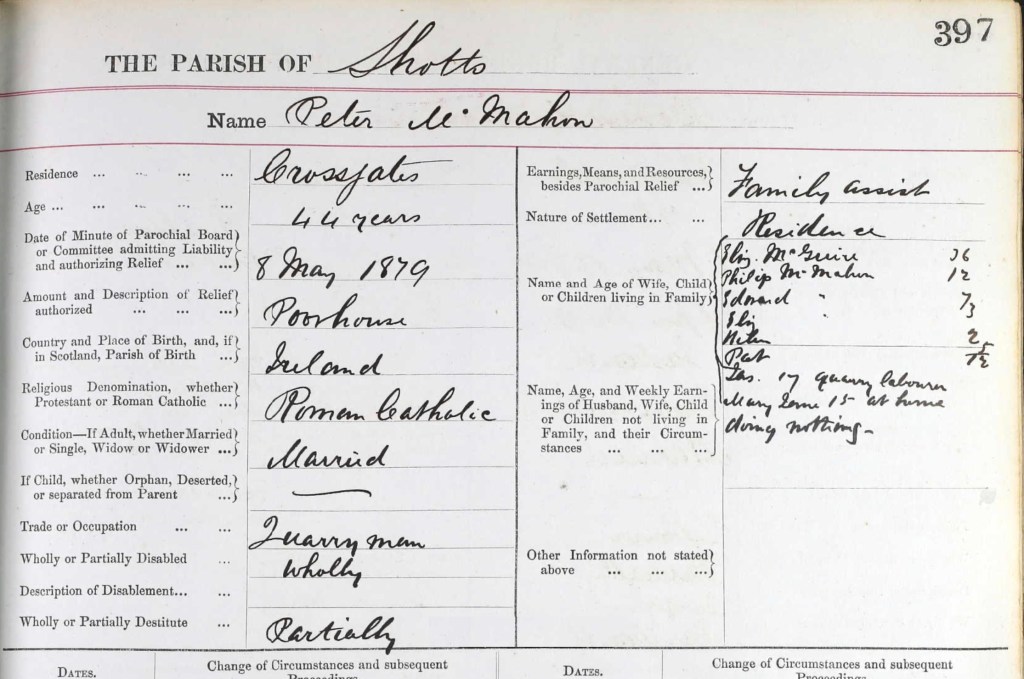 397
THE PARISH OF Shotts
Name Peter Mc Mahon
Residence ... ... ... ... Crossgates
Age ... ... ... ... ... 44 years
Date of Minute of Parochial Board
or Committee admitting Liability
and authorizing Relief ... ... 8 May 1879
Amount and Description of Relief
authorized ... ... ... Poorhouse
Country and Place of Birth, and, if
in Scotland, Parish of Birth ... Ireland
Religious Denomination, whether
Protestant or Roman Catholic ... Roman Catholic
Condition—If Adult, whether Married
or Single, Widow or Widower ... Married
If Child, whether Orphan, Deserted,
or separated from Parent ...
Trade or Occupation ... ... Quarryman
Wholly or Partially Disabled ... Wholly
Description of Disablement... ...
Wholly or Partially Destitute ... Partially
Earnings, Means, and Resources,
besides Parochial Relief ... Family assist
Nature of Settlement... ... Residence
Name and Age of Wife, Child
or Children living in Family
Eliz. McGuire 36
Philip McMahon 12
Edward "
Eliz
Helen
Pat
Name, Age, and Weekly Earn-
ings of Husband, Wife, Child
or Children not living in
Family, and their Circum-
stances ... ... ...
Jas. 17 quarry labourer
Mary Jane 15 at home
doing nothing-
Other Information not stated
above ... ... ...
DATES.
Change of Circumstances and subsequent
Proceedings.
DATES.
Change of Circumstances and subsequent
Proceedings.